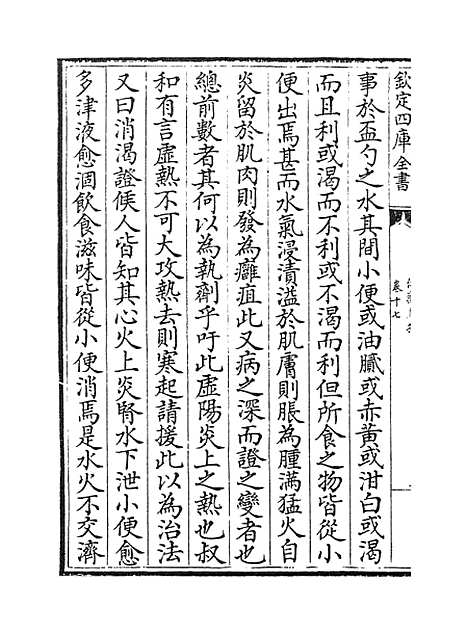 欽定四庫全書
卷十七
事於盃勺之水其間小便或油膩或赤黄或泔白或渴
而且利或渴而不利或不渴而利但所食之物皆從小
便出焉甚而水氣浸漬溢於肌膚則脹為腫滿猛火自
炎留於肌肉則發為癰疽此又病之深而證之變者也
總前數者其何以為執劑乎吁此虚陽炎上之熱也叔
和有言虚熱不可大攻熱去則寒起請援此以為治法
又曰消渴證候人皆知其心火上炎腎水下泄小便愈
多津液愈涸飲食滋味皆從小便消焉是水火不交濟